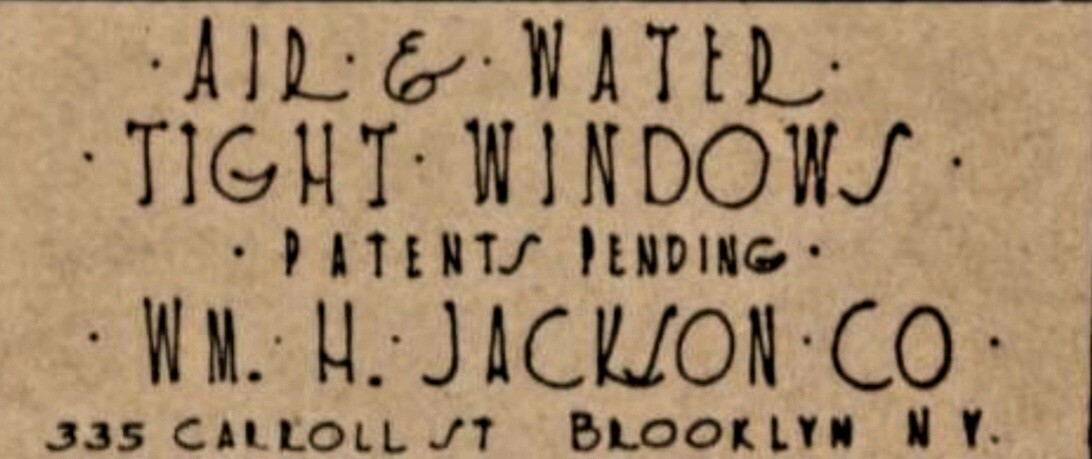 · AIR · & · WATER ·
· TIGHT · WINDOWS ·
· PATENTS PENDING ·
· WM. · H. · JACKSON · CO ·
335 CARROLL ST BROOKLYN N Y.